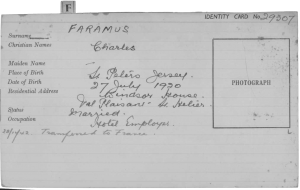 F
IDENTITY CARD No. 29307
Surname FARAMUS
Christian Names Charles
Maiden Name
Place of Birth St Peters Jersey.
Date of Birth 27 July 1920
Residential Address Windsor House.
Val Plaisant St Helier.
Status Married.
Occupation Hotel Employee.
Transferred to France.
PHOTOGRAPH